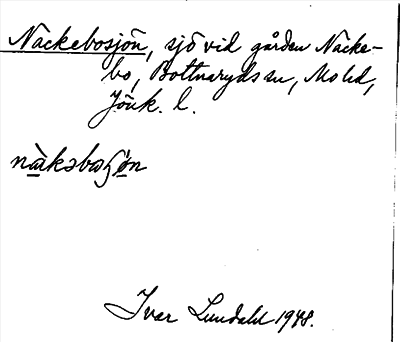 Nackebosjön, sjö vid gården Nacke-
bo, Bottnaryds sn, Mo hd,
Jönk. l.
nàkəboʃø̀n
Ivar Lundahl 1948.